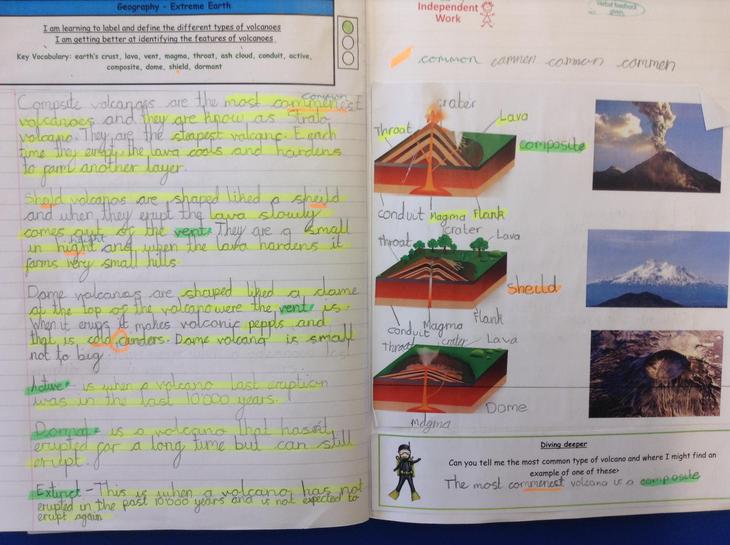 Geography - Extreme Earth
I am learning to label and define the different types of volcanoes
I am getting better at identifying the features of volcanoes
Key Vocabulary: earth's crust, lava, vent, magma, throat, ash cloud, conduit, active,
composite, dome, shield, dormant
common
Compsite volcanoas are the most commenest
volcanoes and they are know as Strato
volcano. They are the steapest volcano. Each
time they erupt, the lava cools and hardens
to form another layer.
Sheild volcanoas are shaped liked a sheild
and when they erupt the lava slowly
comes out of the vent. They are a small
height
in hight and when the lava hardens it
forms very small hills.
Dome volcanoas are shaped liked a dame
at the top of the volcano were the vent is.
When it erups it makes volconic peppls and
that is cold cinders. Dome volcano is small
not to big.
Active - is when a volcano last eruption
was in the last 10'000 years.
Dormant - is a volcano that hasn't
erupted for a long time but can still
erupt.
Extinct - This is when a volcano has not
erupted in the past 10'000 years and is not expected to
erupt again
Independent
Work
Verbal feedback
given
common commen common commen
crater
Throat
Lava
composite
conduit Magma Flank
crater
Throat
Lava
Sheild
conduit Magma Flank
Throat crater Lava
Dome
Magma
Diving deeper
Can you tell me the most common type of volcano and where I might find an
example of one of these?
The most commenest volcano is a composite